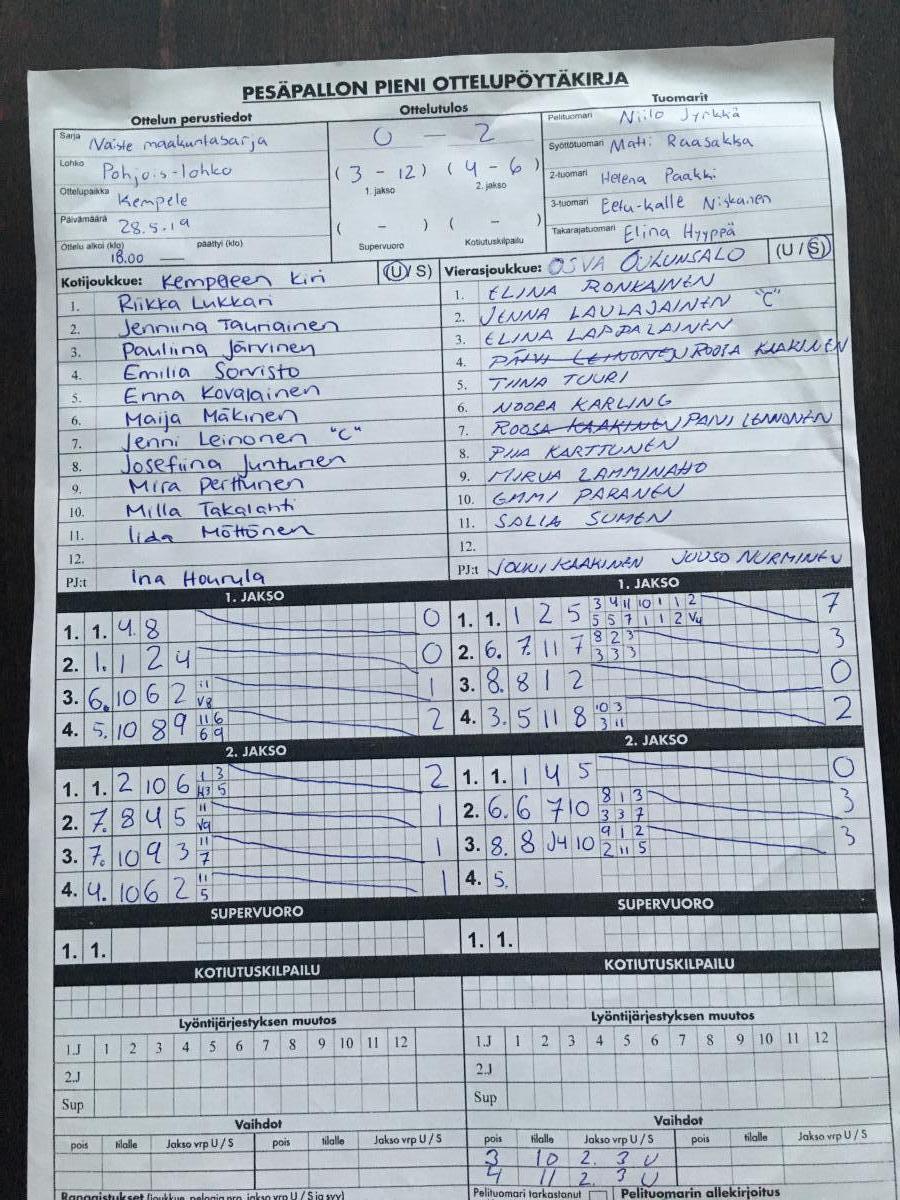 PESÄPALLON PIENI OTTELUPÖYTÄKIRJA
Ottelun perustiedot
Ottelutulos
Tuomarit
Sarja Naiste maakuntasarja
Lohko Pohjois-lohko
Ottelupaikka Kempele
Päivämäärä 28.5.19
Ottelu alkoi (klo) päättyi (klo)
18.00 —
0 – 2
(3 - 12) (4 - 6)
1. jakso 2. jakso
( - ) ( - )
Supervuoro Kotiutuskilpailu
Pelituomari Niilo Jyrkkä
Syöttötuomari Matti Raasakka
2-tuomari Helena Paakki
3-tuomari Eetu-Kalle Niskanen
Takarajatuomari Elina Hyyppä
Kotijoukkue: Kempeleen Kiri (U / S)
1. Riikka Lukkari
2. Jenniina Tauriainen
3. Pauliina Järvinen
4. Emilia Sorvisto
5. Enna Kovalainen
6. Maija Mäkinen
7. Jenni Leinonen "C"
8. Josefiina Juntunen
9. Mira Perttunen
10. Milla Takalahti
11. Iida Möttönen
12.
PJ:t Ina Hourula
Vierasjoukkue: OSVA OULUNSALO (U / S)
1. ELINA RONKAINEN
2. JENNA LAULAJAINEN "C"
3. ELINA LAPPALAINEN
4. PÄIVI LEINONEN ROOSA KAAKINEN
5. TIINA TUURI
6. NOORA KARLING
7. ROOSA KAAKINEN PÄIVI LEINONEN
8. PIIA KARTTUNEN
9. MIRVA LAMMINAHO
10. EMMI PARANEN
11. SALLA SUMEN
12.
PJ:t JOUKI KAAKINEN JUUSO NURMINEN
1. JAKSO
1. 1. 4 8 0
2. 1. 1 2 4 0
3. 6. 10 6 2 11 V8 1
4. 5. 10 8 9 11 6 6 9 2
1. JAKSO
1. 1. 1 2 5 3 4 11 10 1 1 2 7
5 5 7 1 1 2 V4
2. 6. 7 11 7 8 2 3 3
3 3 3
3. 8. 8 1 2 0
4. 3. 5 11 8 10 3 2
3 11
2. JAKSO
1. 1. 2 10 6 1 3 2
H3 5
2. 7. 8 4 5 11 1
V9
3. 7. 10 9 3 11 1
7
4. 4. 10 6 2 11 1
5
2. JAKSO
1. 1. 1 4 5 0
2. 6. 6 7 10 8 1 3 3
3 3 7
3. 8. 8 J4 10 9 1 2 3
2 11 5
4. 5.
SUPERVUORO
1. 1.
SUPERVUORO
1. 1.
KOTIUTUSKILPAILU
KOTIUTUSKILPAILU
Lyöntijärjestyksen muutos
1.J 1 2 3 4 5 6 7 8 9 10 11 12
2.J
Sup
Lyöntijärjestyksen muutos
1.J 1 2 3 4 5 6 7 8 9 10 11 12
2.J
Sup
Vaihdot
pois tilalle Jakso vrp U / S pois tilalle Jakso vrp U / S
Vaihdot
pois tilalle Jakso vrp U / S pois tilalle Jakso vrp U / S
3 10 2. 3 U
4 11 2. 3 U
Rangaistukset (joukkue, pelaaja nro, jakso vrp U / S ja syy)
Pelituomari tarkastanut Pelituomarin allekirjoitus